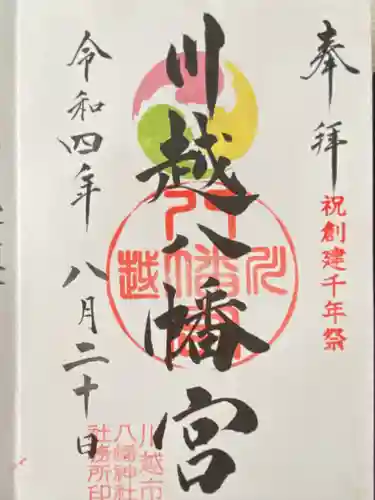 奉拝
祝創建千年祭
川越八幡宮
川越八幡宮
令和四年 八月二十日
川越市
八幡神社
社務所印